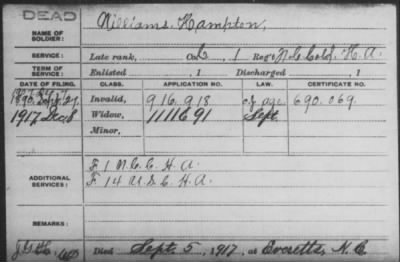 DEAD
NAME OF SOLDIER: Williams, Hampton,
SERVICE: Late rank, Co. L, 1 Reg't N.C. Cold. H.A.
TERM OF SERVICE: Enlisted , 1 Discharged , 1
DATE OF FILING. CLASS. APPLICATION NO. LAW. CERTIFICATE NO.
1890 Sept. 27. Invalid, 916.918 of age 690.069.
1917 Dec 8 Widow, 1111691 Sept.
Minor,
ADDITIONAL SERVICES:
F 1 N.C.C.H.A.
F 14 U.S.C.H.A.
REMARKS:
Died Sept. 5, 1917, at Everetts, N.C.